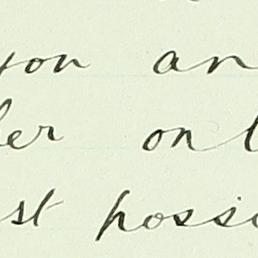 you an
er on
st possi